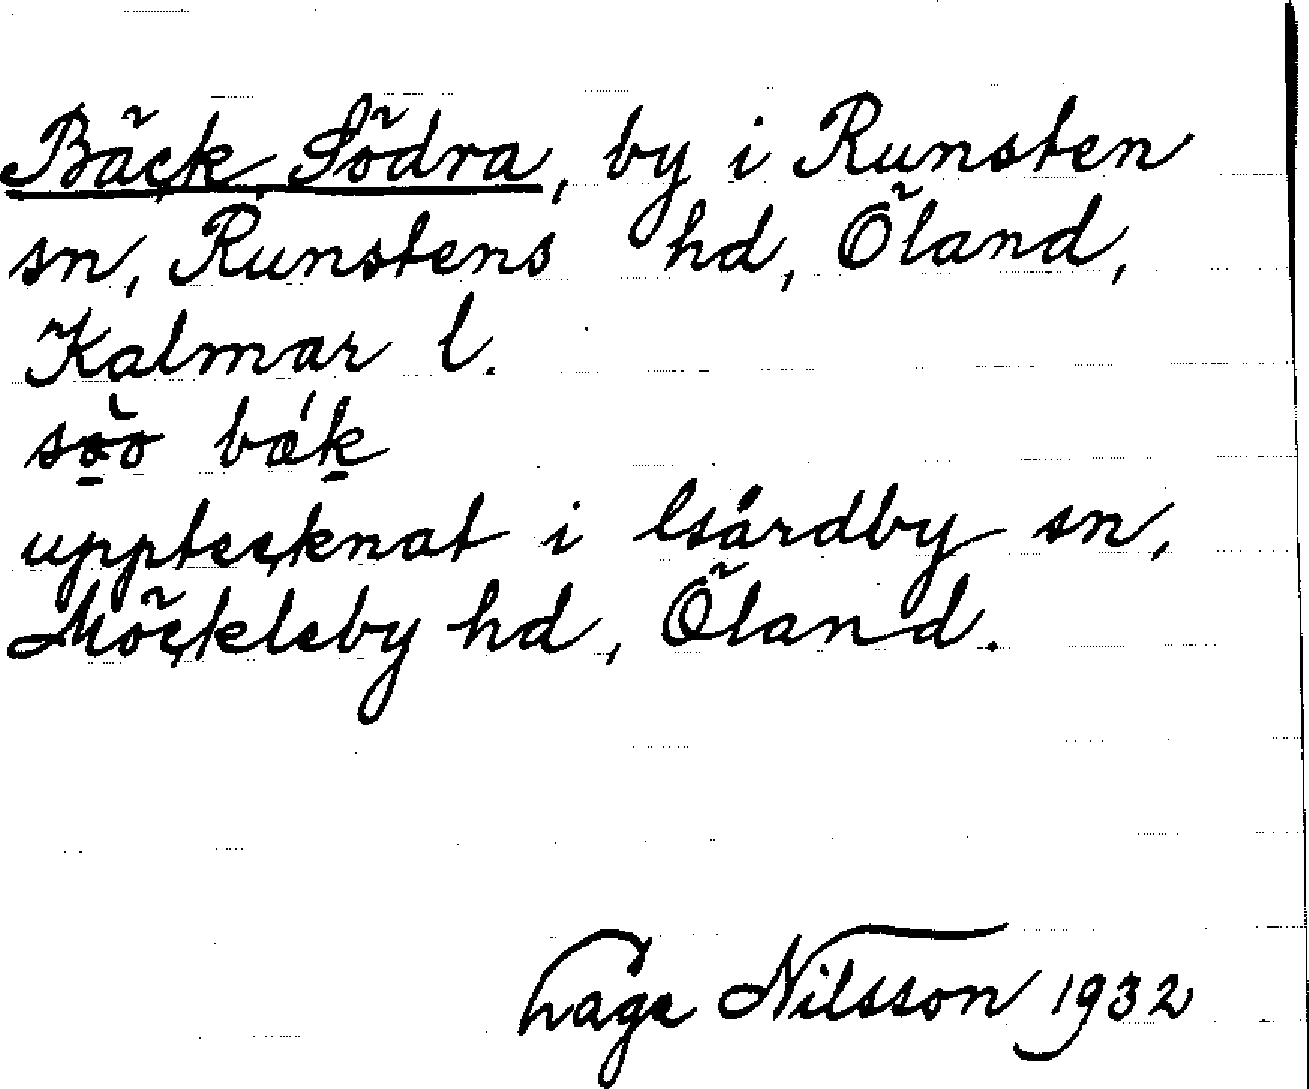 Bäck Södra, by i Runsten
sn, Runstens hd, Öland,
Kalmar l.
upptecknat i Gårdby sn,
Möckleby hd, Öland.
Nilsson 1932